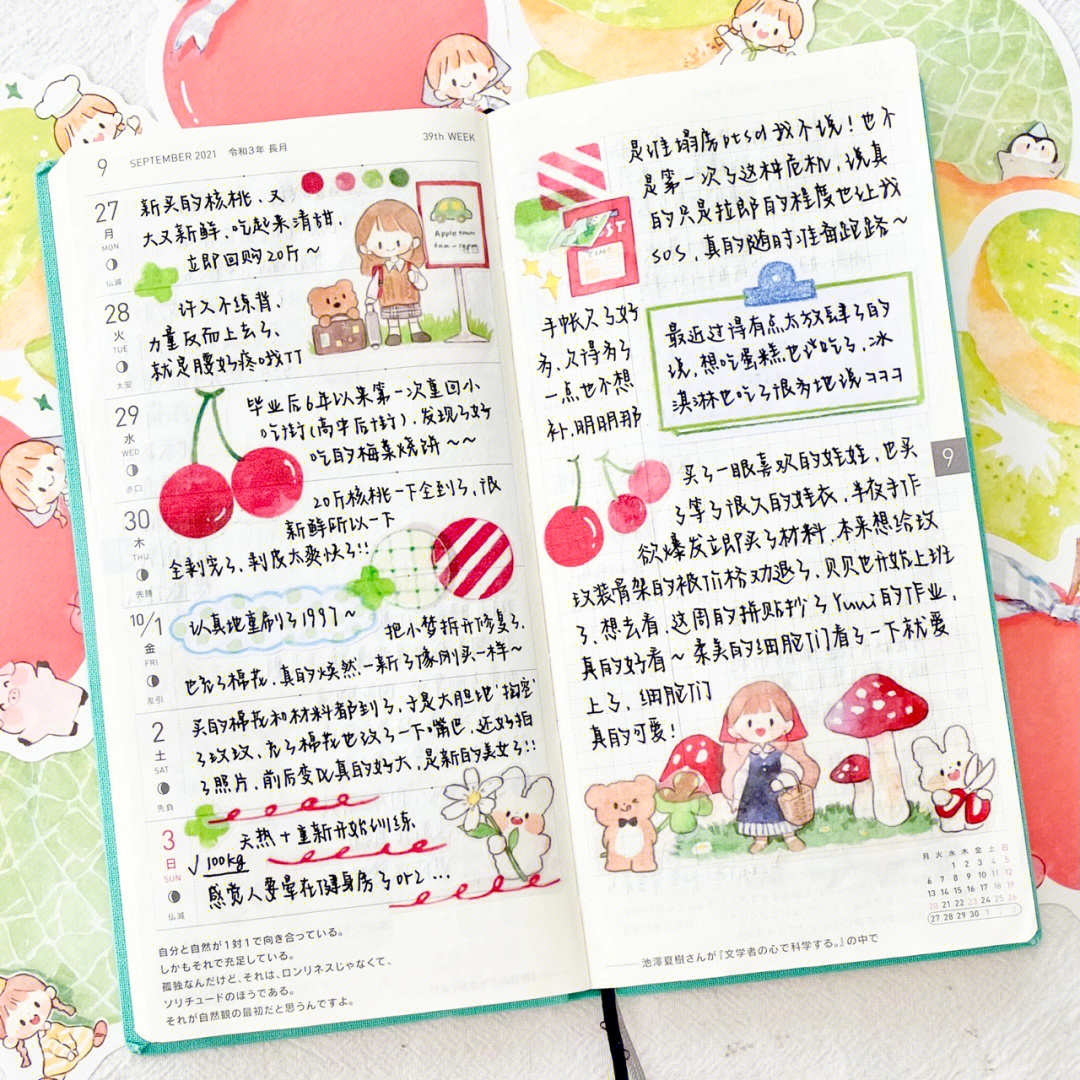 9 SEPTEMBER 2021 令和3年 長月
39th WEEK
27
月
MON
仏滅
新买的核桃、又
大又新鲜、吃起来清甜、
立即回购20斤~
Apple town
28
火
TUE
大安
许久不练背、
力量反而上去了、
就是腰好疼哦TT
29
水
WED
赤口
毕业后6年以来第一次重回小
吃街(高中后街)、发现了好
吃的梅菜烧饼~~
30
木
THU
先勝
20斤核桃一下全到了、很
新鲜所以一下
全剥完了、剥皮太爽快了!!
10/1
金
FRI
友引
认真地重刷了1997~
把小梦拆开修复了、
也充了棉花、真的焕然一新了像刚买一样~
2
土
SAT
先負
买的棉花和材料都到了、于是大胆地
了玟玟、充了棉花也改了一下嘴巴、还好拍
了照片、前后变化真的好大、是新的美女了!!
3
日
SUN
仏滅
天热+重新开始训练
✓100kg
感觉人要晕在健身房了orz...
自分と自然が1対1で向き合っている。
しかもそれで充足している。
孤独なんだけど、それは、ロンリネスじゃなくて、
ソリチュードのほうである。
それが自然観の最初だと思うんですよ。
是谁塌房ptsd我不说!也不
是第一次了这种危机、说真
的只是拉郎的程度也让我
sos、真的随时准备跑路~
手帐欠了好
多、欠得多了
一点也不想
补、明明那
最近过得有点太放肆了的
说、想吃蛋糕也说吃了、冰
淇淋也吃了很多地说ココココ
9
买了一眼喜欢的娃娃、也买
了等了很久的娃衣、半夜手作
欲爆发立即买了材料、本来想给玟
玟装骨架的被价格劝退了、贝贝也开始上班
了、想去看、这周的拼贴抄了Yuui的作业、
真的好看~柔美的细胞们看了一下就爱
上了、细胞们
真的可爱!
月 火 水 木 金 土 日
1 2 3 4 5
6 7 8 9 10 11 12
13 14 15 16 17 18 19
20 21 22 23 24 25 26
27 28 29 30 1 2 3
——池澤夏樹さんが『文学者の心で科学する。』の中で